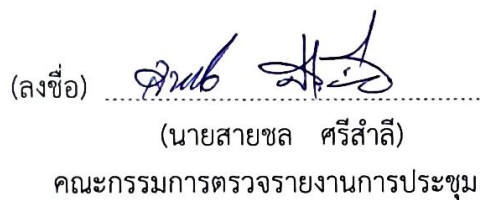 (ลงชื่อ)
(นายสายชล ศรีสำลี)
คณะกรรมการตรวจรายงานการประชุม